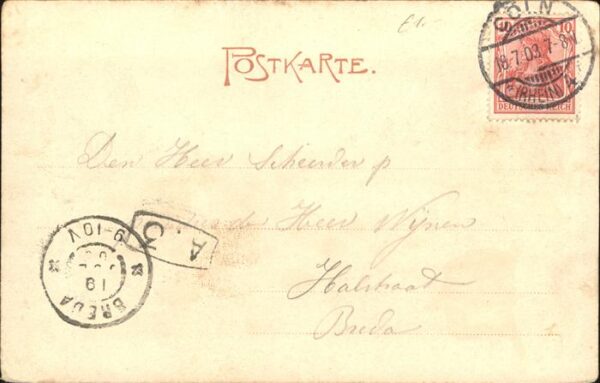 £1-
POSTKARTE.
CÖLN
18.7.03. 7-8
(RHEIN) 4
10
DEUTSCHES REICH
Den Heer Scheerder p
de Heer Wijnen
Halstraat
Breda
BREDA
18
9-10V
A